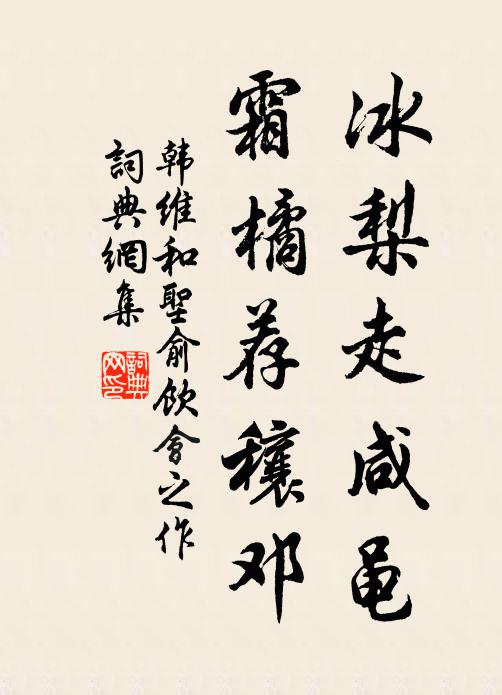 冰梨走咸黾
霜橘荐穰邓
韩維和聖俞飲會之作
詞典網集
詞典网印